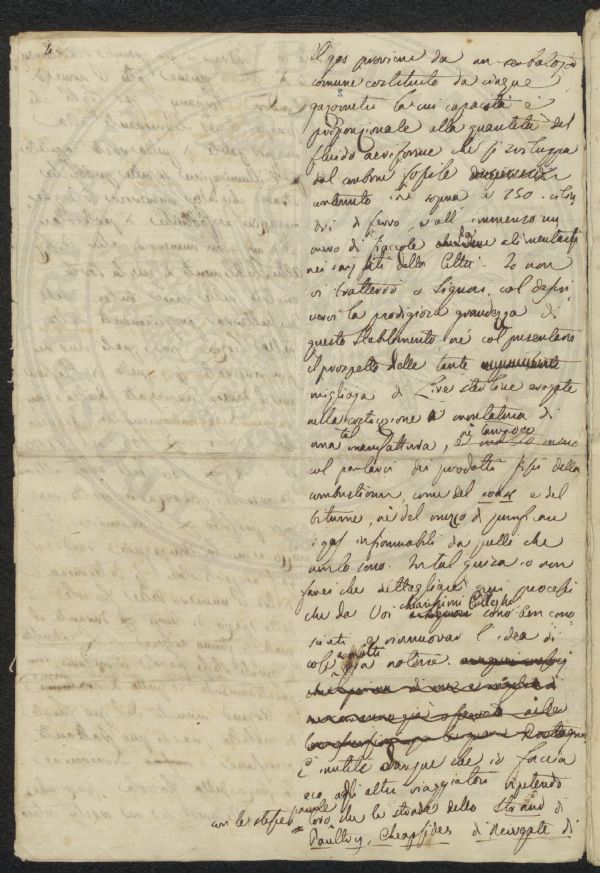 Il gas proviene da un serbatojo
comune costituito da cinque
gazometri la cui capacità è
proporzionale alla quantità del
fluido aeriforme che si sviluppa
dal carbone fossile
contenuto in sopra a 250 cilin
dri di ferro, e all' immenso nu
mero di fiaccole alimentarsi
nei varj siti della Città. Io non
vi tratterrò o Signori, col descri
vervi la prodigiosa grandezza di
questo stabilimento nè col presentarvi
il prospetto delle tante
migliaja di Lire sterline erogate
nella costruzione e montatura di
una tal manifattura, e nè tampoco
col parlarvi dei prodotti fissi della
combustione, come del coack e del
bitume, nè del mezzo di purificare
i gas infiammabili da quelli che
non lo sono. In tal guisa io non
farei che dettagliare processi
che da Voi chiarissimi Colleghi sono ben cono
sciuti e rinnovar l'idea di
cose a tutti notorie.
È inutile dunque che io faccia
eco agli altri viaggiatori ripetendo
con le stesse parole loro, che le strade dello Strand di
Poultry, Cheapsides di Newgate di